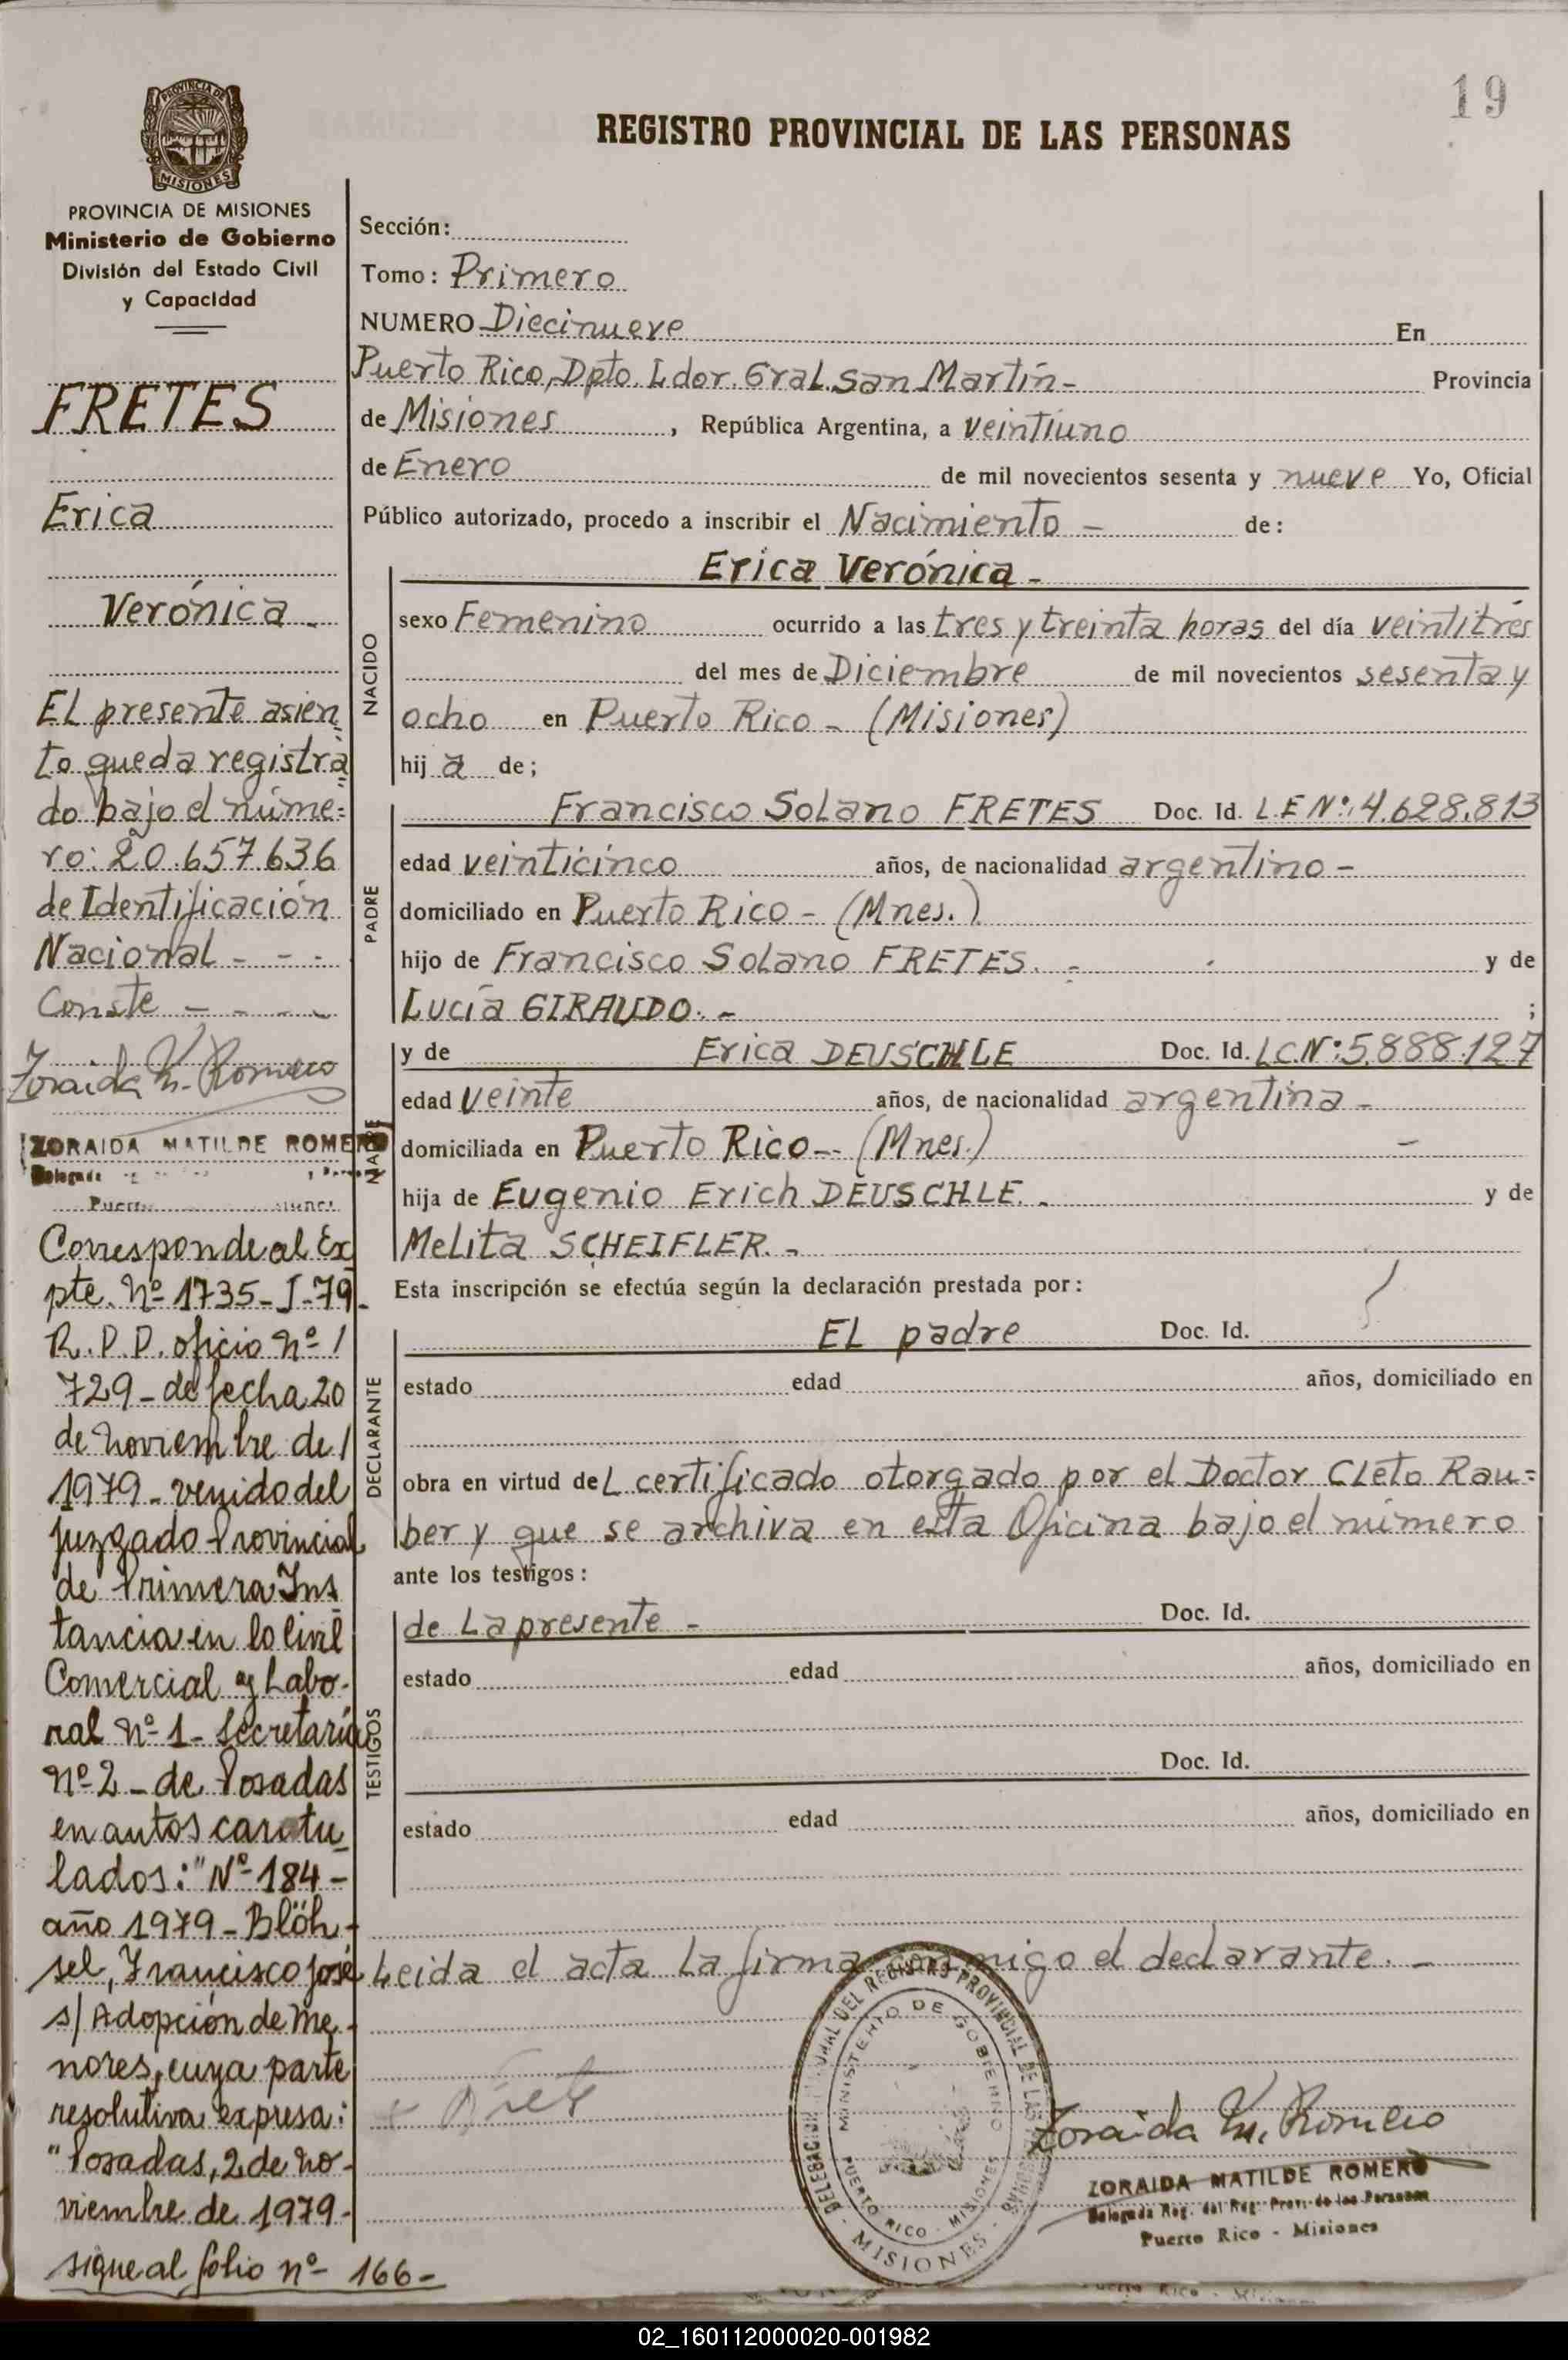 19
REGISTRO PROVINCIAL DE LAS PERSONAS
PROVINCIA DE MISIONES
PROVINCIA DE MISIONES
Ministerio de Gobierno
División del Estado Civil
y Capacidad
FRETES
Erica
Verónica -
El presente asien
to queda registra
do bajo el núme=
ro: 20.657.636
de Identificación
Nacional - - -
Conste - - - -
Zoraida M. Romero
ZORAIDA MATILDE ROMERO
Delegada
Puerto
Corresponde al Ex
pte. Nº 1735-J-79-
R.P.P. oficio nº 1
729 - de fecha 20
de noviembre de /
1979 - venido del
juzgado Provincial
de Primera Ins
tancia en lo Civil
Comercial y Labo-
ral Nº 1 - Secretaría
Nº 2 - de Posadas
en autos caratu
lados: "Nº 184 -
año 1979 - Blöh-
sel, Francisco José
s/ Adopción de Me-
nores, cuya parte
resolutiva expresa:
"Posadas, 2 de no-
viembre de 1979 -
sigue al folio nº 166 -
Sección:
Tomo: Primero
NUMERO Diecinueve En
Puerto Rico, Dpto. Ldor. Gral. San Martín - Provincia
de Misiones , República Argentina, a veintiuno
de Enero de mil novecientos sesenta y nueve Yo, Oficial
Público autorizado, procedo a inscribir el Nacimiento - de:
Erica Verónica -
NACIDO
sexo Femenino ocurrido a las tres y treinta horas del día veintitrés
del mes de Diciembre de mil novecientos sesenta y
ocho en Puerto Rico - (Misiones)
hij a de;
PADRE
Francisco Solano FRETES Doc. Id. L.E Nº: 4.628.813
edad veinticinco años, de nacionalidad argentino -
domiciliado en Puerto Rico - (Mnes.)
hijo de Francisco Solano FRETES. - y de
Lucía GIRAUDO. - ;
MADRE
y de Erica DEUSCHLE Doc. Id. L.C.Nº: 5.888.127
edad veinte años, de nacionalidad argentina -
domiciliada en Puerto Rico -- (Mnes.) -
hija de Eugenio Erich DEUSCHLE. - y de
Melita SCHEIFLER. -
Esta inscripción se efectúa según la declaración prestada por:
DECLARANTE
El padre Doc. Id.
estado edad años, domiciliado en
obra en virtud del certificado otorgado por el Doctor Cleto Rau=
ber y que se archiva en esta Oficina bajo el número
ante los testigos:
TESTIGOS
de la presente - Doc. Id.
estado edad años, domiciliado en
Doc. Id.
estado edad años, domiciliado en
Leida el acta la firma conmigo el declarante. -
DELEGACION REGIONAL DEL REGISTRO PROVINCIAL DE LAS PERSONAS - MISIONES -
MINISTERIO DE GOBIERNO
PUERTO RICO - MISIONES
Zoraida M. Romero
ZORAIDA MATILDE ROMERO
Delegada Reg. del Reg. Prov. de las Personas
Puerto Rico - Misiones
02_160112000020-001982